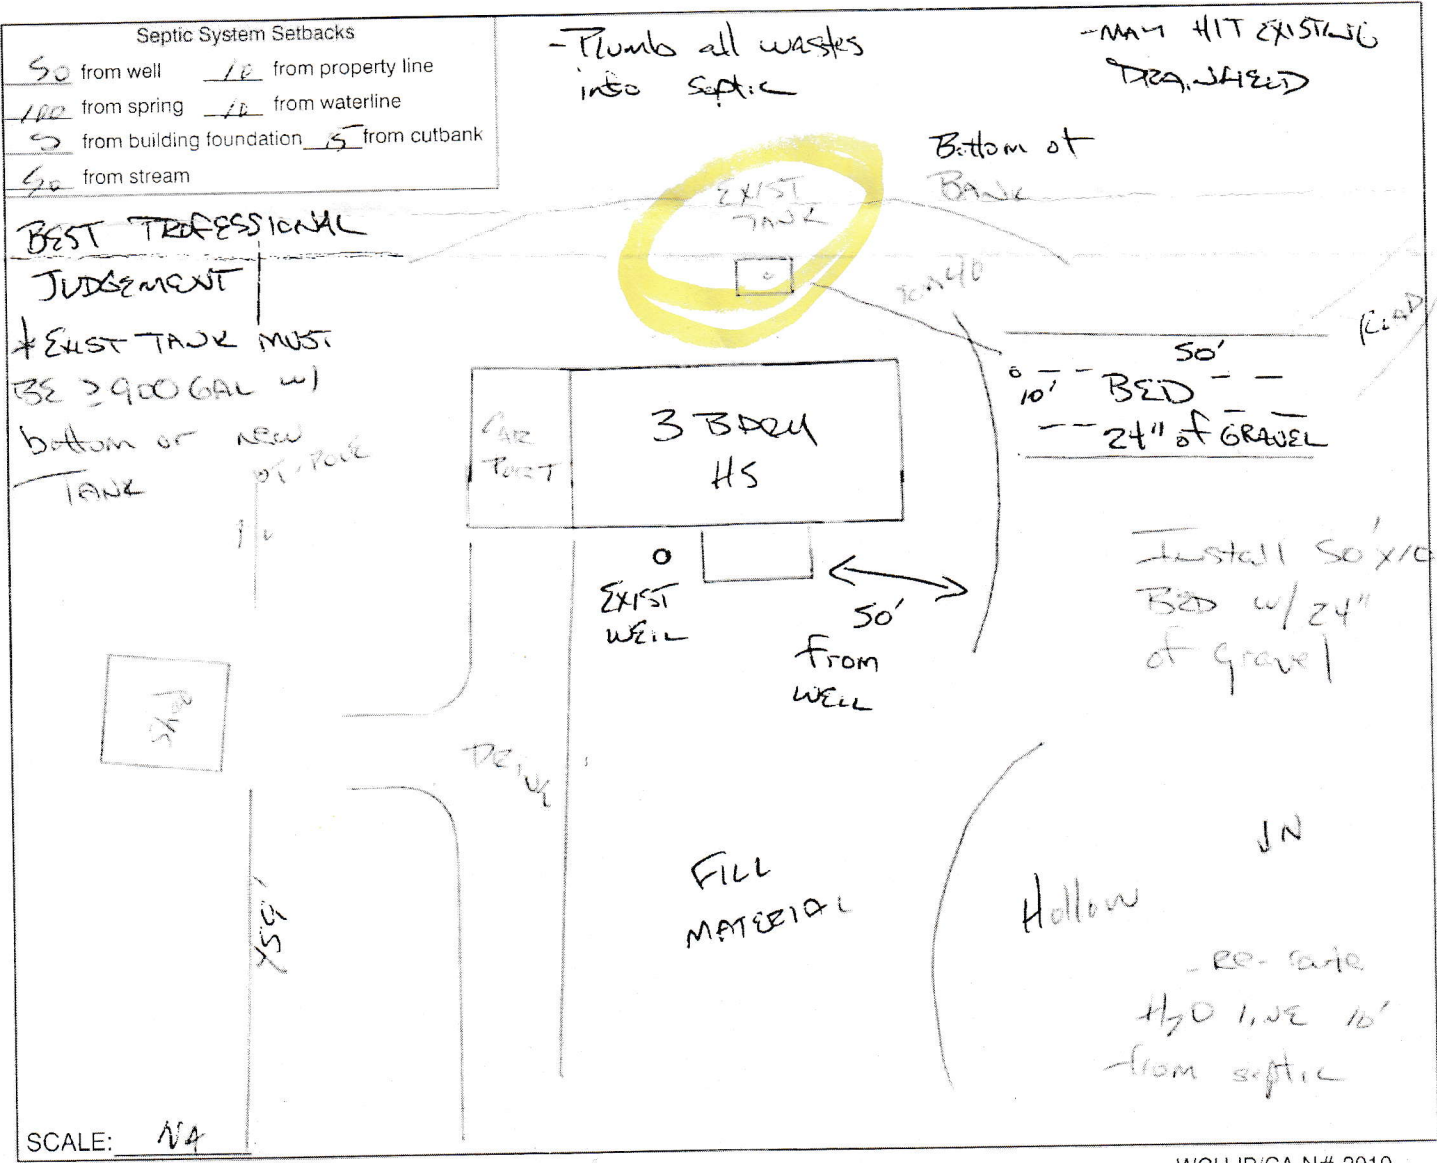 Septic System Setbacks
50 from well 10 from property line
100 from spring 10 from waterline
5 from building foundation 15 from cutbank
50 from stream
- Plumb all wastes
into septic
- MAY HIT EXISTING
DRAINFIELD
Bottom of
BANK
EXIST
TANK
BEST PROFESSIONAL
JUDGEMENT
* EXIST TANK MUST
BE ≥ 900 GAL w/
bottom or new
TANK
50'
10' BED
24" of GRAVEL
CAR
PORT
3 BDRM
HS
EXIST
WELL
50'
from
WELL
Install 50'x10
BED w/ 24"
of gravel
DRIVE
FILL
MATERIAL
Hollow
N
H2O LINE 10'
from septic
SCALE: NA